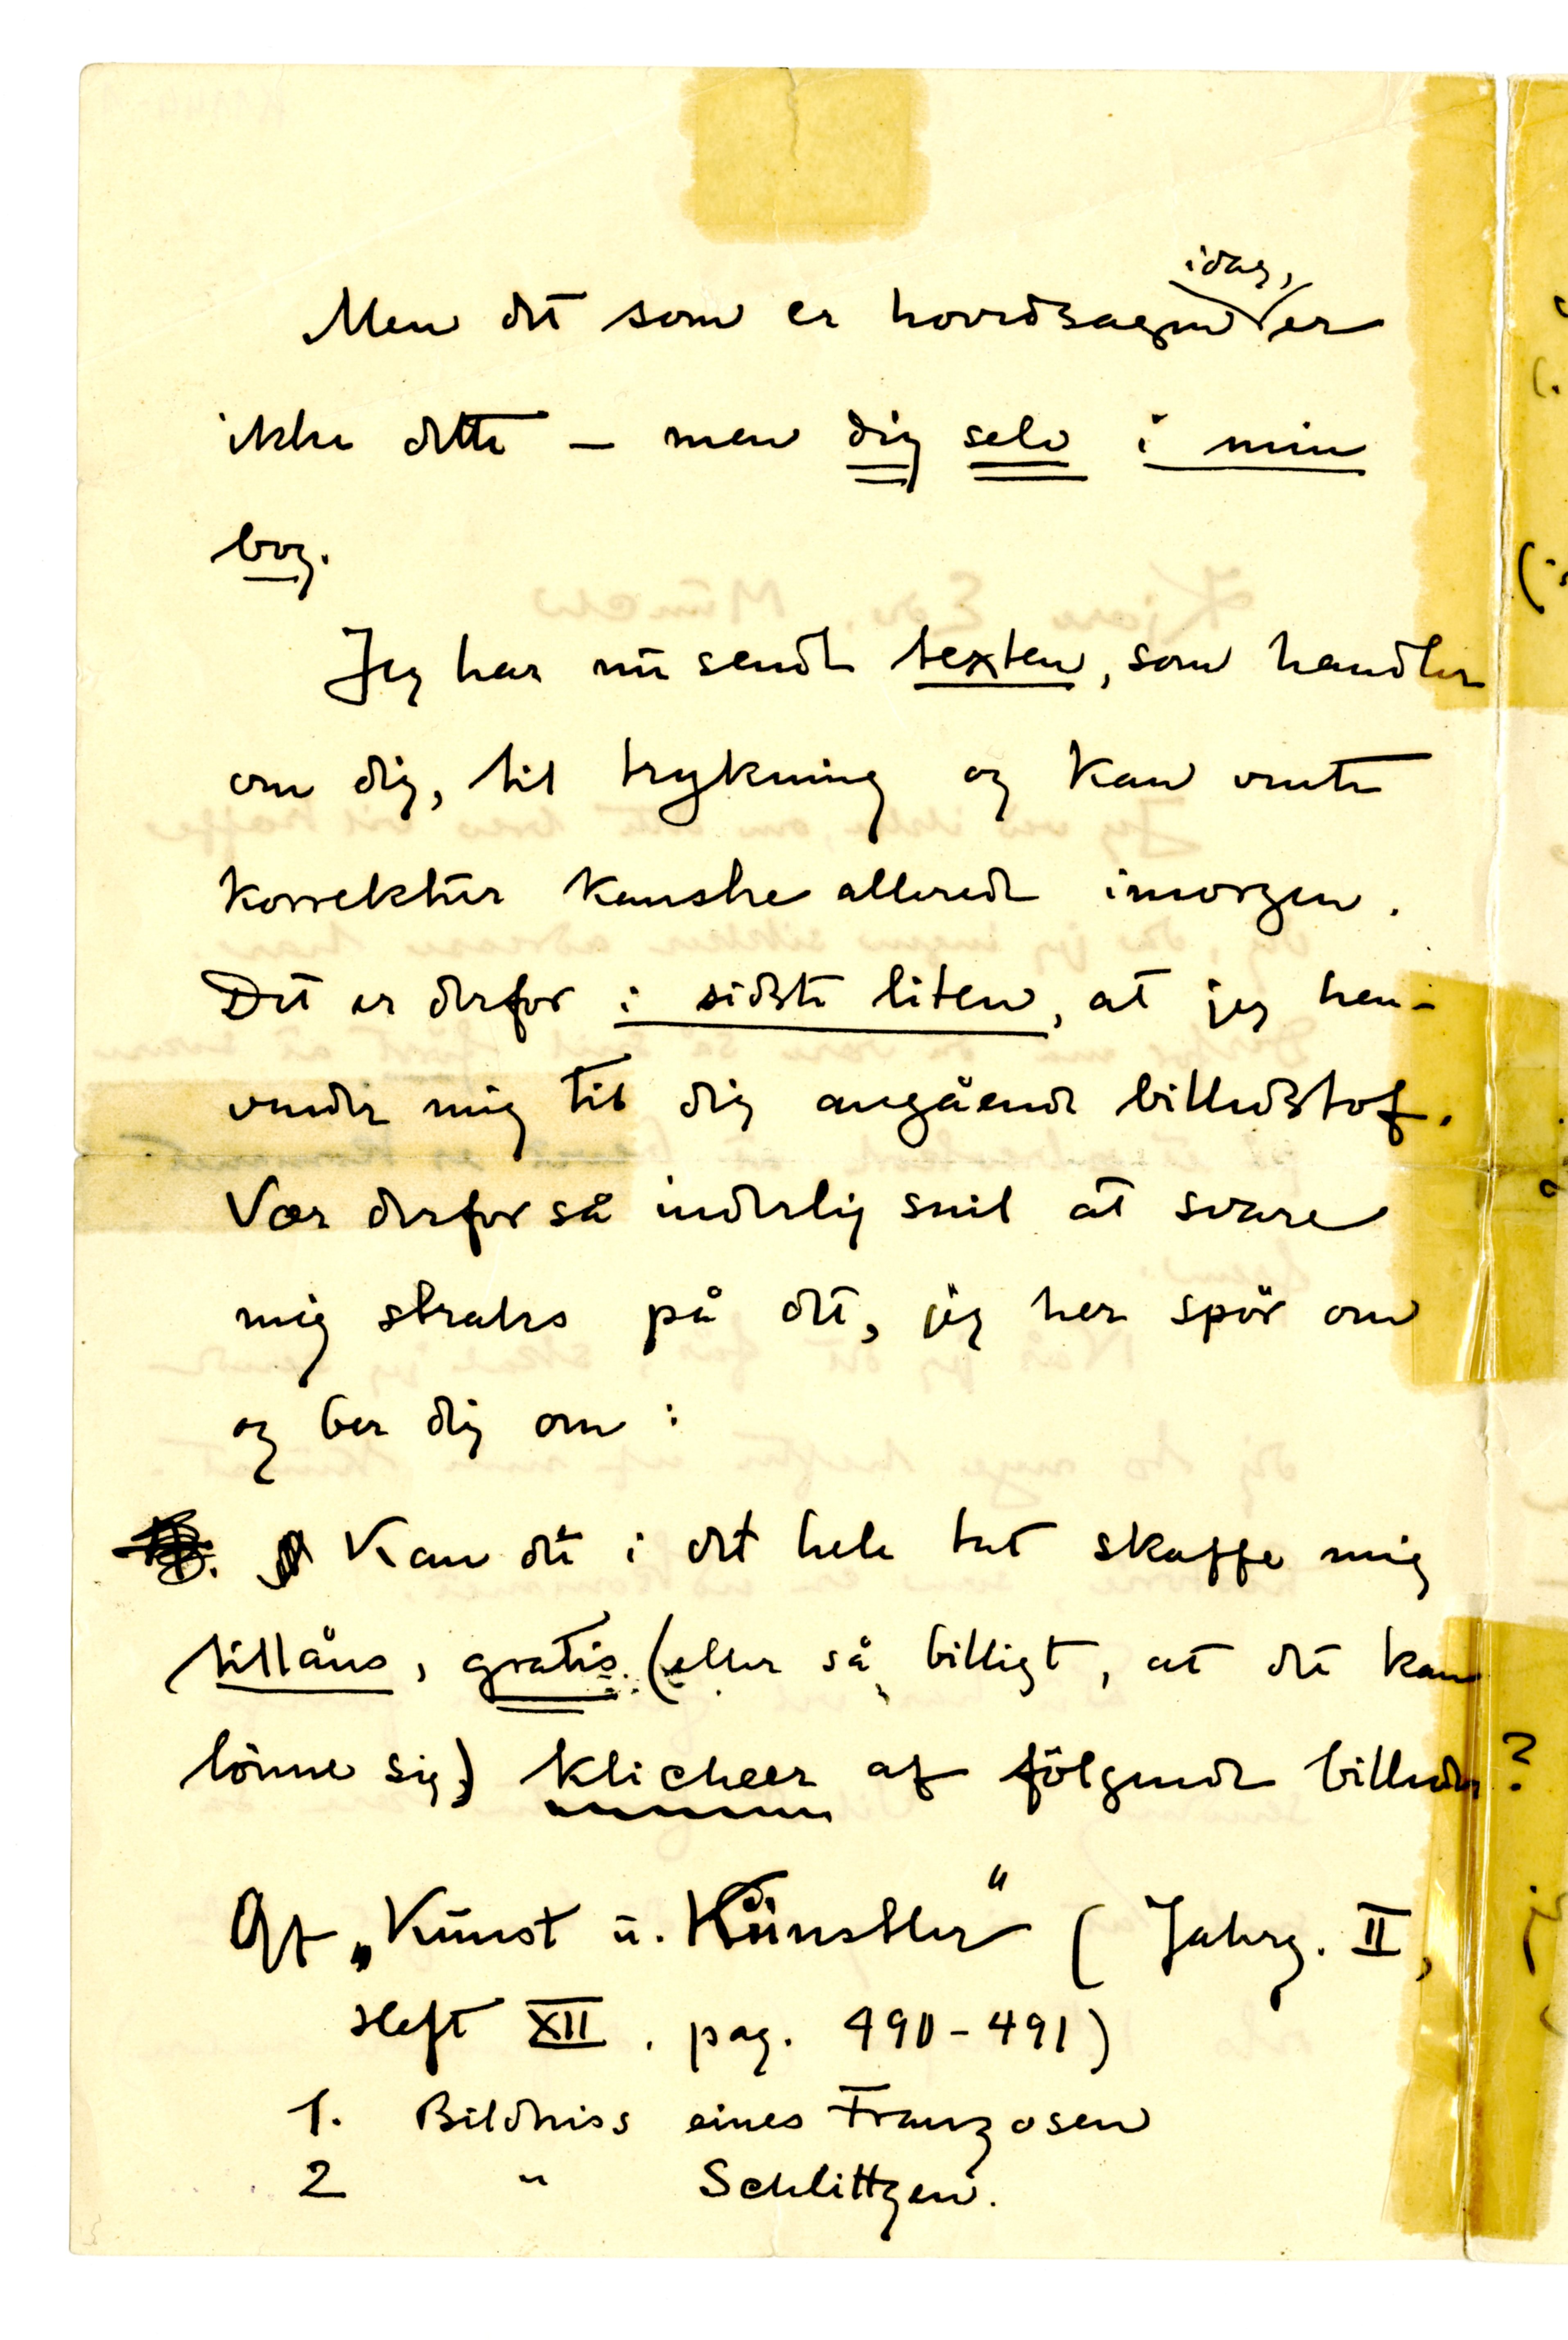 Men det som er hovedsagen idag, er
ikke dette – men dig selv i min
bog.
Jeg har nu sendt texten, som handler
om dig, til trykning og kan vente
korrektur kanske allerede imorgen.
Det er derfor i sidste liten, at jeg hen-
vender mig til dig angående billedstof.
Vær derfor så inderlig snil at svare
mig straks på det, jeg her spör om
og ber dig om:
Kan du i det hele tat skaffe mig
tillåns, gratis (eller så billigt, at det kan
lönne sig) klicheer af fölgende billeder?
Af „Kunst u. Künstler“ (Jahrg. II,
Heft XII. pag. 490-491)
1. Bildniss eines Franzosen
2 " Schlittgen.